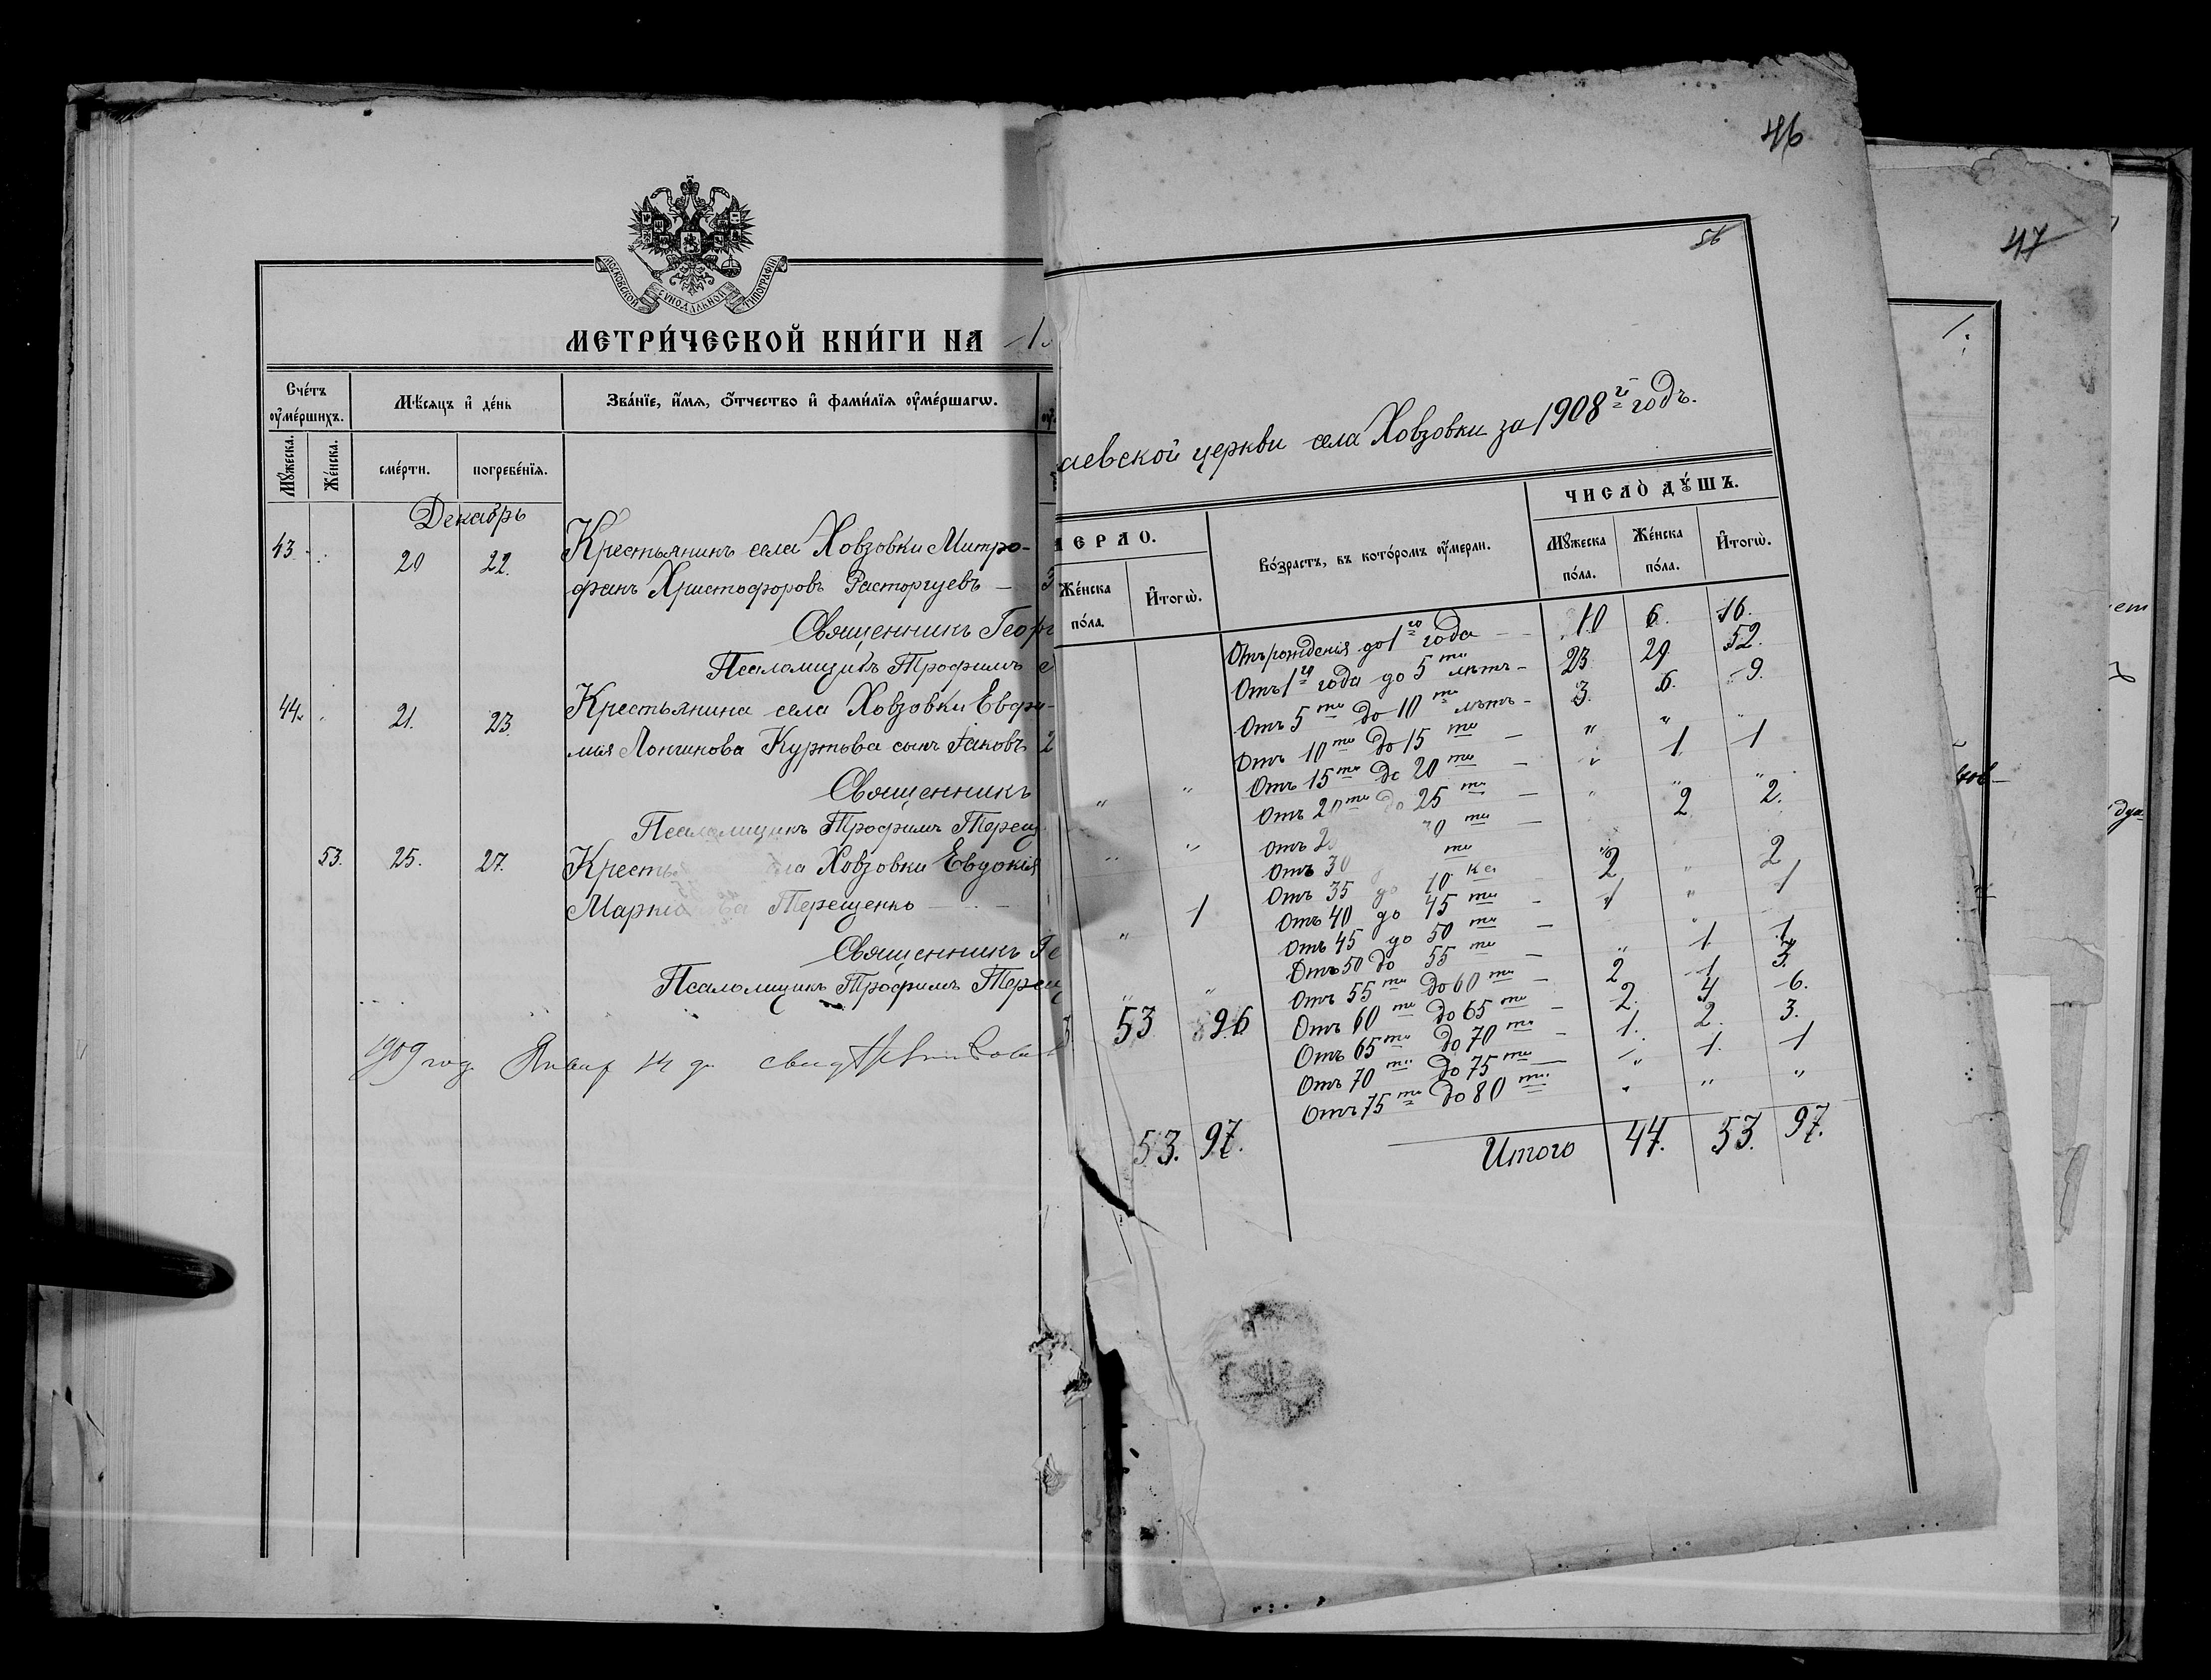 МОСКОВСКОЙ СѴНОДАЛЬНОЙ ТИПОГРАФІИ
МЕТРИ́ЧЕСКОЙ КНИ́ГИ НА 1
Сче́тъ ᲂу҆ме́ршихъ.
Мѣ́сяцъ и҆ де́нь
Зва́нїе, и҆́мѧ, ѻ҆́тчество и҆ фами́лїѧ ᲂу҆ме́ршагѡ.
Мꙋ́жеска.
Же́нска.
сме́рти.
погребе́нїѧ.
Декабрь
43 20 22. Крестьянинъ села Ховзовки Митро-
фанъ Христофоровъ Расторгуевъ — 3
Священникъ Геор
Псаломщикъ Трофимъ
44. 21. 23. Крестьянина села Ховзовки Евфи-
мія Лонгинова Куртова сынъ Іаковъ 2
Священникъ
Псаломщикъ Трофимъ Терещ
53. 25. 27. Кресть ла Ховзовки Евдокія
Марк Терещенко
Священникъ Ге
Псаломщикъ Трофимъ Терещ
1909 год Январ 14 д
46
56
аевской церкви села Ховзовки за 1908й годъ.
МЕРЛО.
Же́нска по́ла.
И҆тогѡ̀.
Во́зрастъ, въ кото́ромъ ᲂу҆́мерли.
ЧИСЛО̀ ДꙊ́ШЪ.
Мꙋ́жеска по́ла.
Же́нска по́ла.
И҆тогѡ̀.
Отъ рожденія до 1го года — 10 6. 16.
Отъ 1го года до 5ти лѣтъ — 23 29 52.
Отъ 5ти до 10ти лѣтъ — 3. 6. 9.
Отъ 10ти до 15ти — " " "
Отъ 15ти до 20ти — " 1 1
" " Отъ 20ти до 25ти — " " "
Отъ 2 0ти — 2 2.
Отъ 30 ти
1 Отъ 35 до 2 " 2
Отъ 40 до 45ти — 1 " 1
Отъ 45 до 50ти —
Отъ 50 до 55ти — " 1 1
Отъ 55ти до 60ти — 2 1 3.
53 96 Отъ 60ти до 65ти — 2. 4 6.
Отъ 65ти до 70ти — 1. 2. 3.
Отъ 70ти до 75ти — " 1. 1
Отъ 75ти до 80ти " " "
53. 97. Итого 44. 53. 97.
47